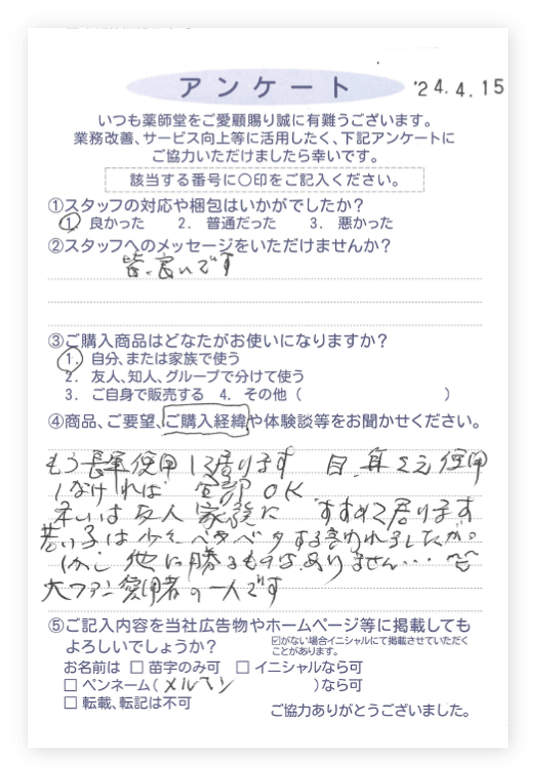 アンケート
'24.4.15
いつも薬師堂をご愛顧賜り誠に有難うございます。
業務改善、サービス向上等に活用したく、下記アンケートに
ご協力いただけましたら幸いです。
該当する番号に〇印をご記入ください。
①スタッフの対応や梱包はいかがでしたか？
1. 良かった 2. 普通だった 3. 悪かった
②スタッフへのメッセージをいただけませんか？
皆、良いです
③ご購入商品はどなたがお使いになりますか？
1. 自分、または家族で使う
2. 友人、知人、グループで分けて使う
3. ご自身で販売する 4. その他（ ）
④商品、ご要望、ご購入経緯や体験談等をお聞かせください。
もう長年使用して居ります 目、耳さえ使用
しなければ 全部OK
友人 家族に すすめて居ります
若い子は少々ベタベタする言われましたが。
しかし 他に勝るものはありません・・・
大ファン愛用者の一人です
⑤ご記入内容を当社広告物やホームページ等に掲載しても
よろしいでしょうか？
☑がない場合イニシャルにて掲載させていただく
ことがあります。
お名前は □ 苗字のみ可 □ イニシャルなら可
□ ペンネーム（メルヘン ）なら可
□ 転載、転記は不可
ご協力ありがとうございました。